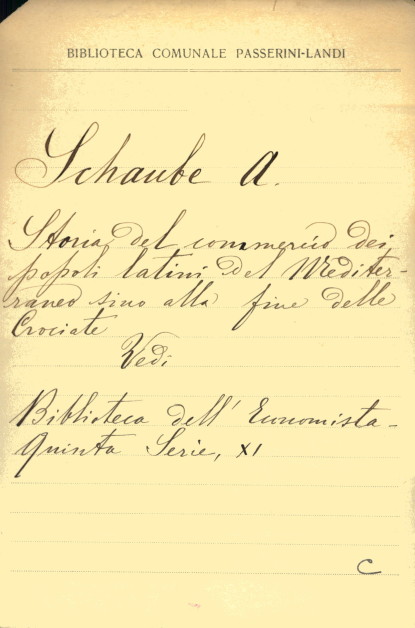 BIBLIOTECA COMUNALE PASSERINI-LANDI
Schaube A.
Storia del commercio dei
popoli latini del Mediter-
raneo sino alla fine delle
Crociate
Vedi
Biblioteca dell'Economista-
Quinta Serie, XI
C